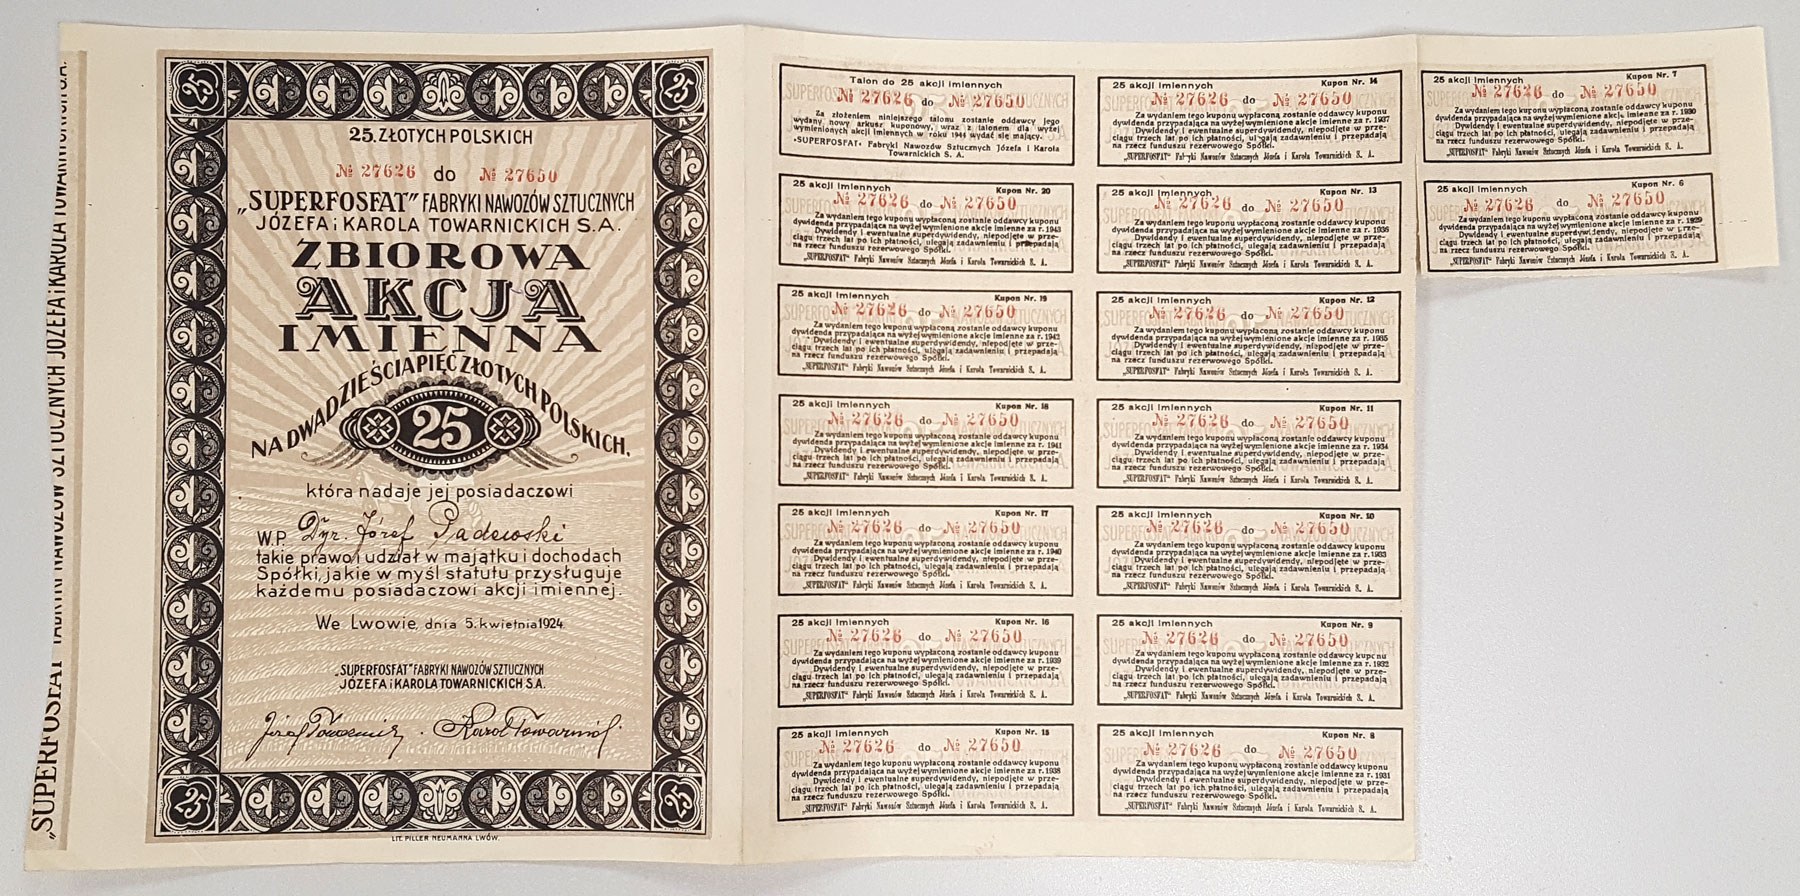 „SUPERFOSFAT” FABRYKI NAWOZÓW SZTUCZNYCH JÓZEFA i KAROLA TOWARNICKICH S.A.
25 25
25. ZŁOTYCH POLSKICH
№ 27626 do № 27650
„SUPERFOSFAT” FABRYKI NAWOZÓW SZTUCZNYCH
JÓZEFA i KAROLA TOWARNICKICH S.A.
ZBIOROWA
AKCJA
IMIENNA
NA DWADZIEŚCIAPIĘĆ ZŁOTYCH POLSKICH.
25
która nadaje jej posiadaczowi
W.P. Dyr. Józef Padewski
takie prawo i udział w majątku i dochodach
Spółki, jakie w myśl statutu przysługuje
każdemu posiadaczowi akcji imiennej.
We Lwowie, dnia 5. kwietnia 1924
„SUPERFOSFAT” FABRYKI NAWOZÓW SZTUCZNYCH
JÓZEFA i KAROLA TOWARNICKICH S.A.
Józef Towarnicki . Karol Towarnicki
25 25
LIT. PILLER NEUMANNA LWÓW.
Talon do 25 akcji imiennych
№ 27626 do № 27650
Za złożeniem niniejszego talonu zostanie oddawcy jego
wydany nowy arkusz kuponowy, wraz z talonem dla wyżej
wymienionych akcji imiennych w roku 1944 wydać się mający.
„SUPERFOSFAT” Fabryki Nawozów Sztucznych Józefa i Karola
Towarnickich S. A.
25 akcji imiennych Kupon Nr. 20
№ 27626 do № 27650
Za wydaniem tego kuponu wypłaconą zostanie oddawcy kuponu
dywidenda przypadająca na wyżej wymienione akcje imienne za r. 1943
Dywidendy i ewentualne superdywidendy, niepodjęte w prze-
ciągu trzech lat po ich płatności, ulegają zadawnieniu i przepadają
na rzecz funduszu rezerwowego Spółki.
„SUPERFOSFAT” Fabryki Nawozów Sztucznych Józefa i Karola Towarnickich S. A.
25 akcji imiennych Kupon Nr. 19
№ 27626 do № 27650
Za wydaniem tego kuponu wypłaconą zostanie oddawcy kuponu
dywidenda przypadająca na wyżej wymienione akcje imienne za r. 1942
Dywidendy i ewentualne superdywidendy, niepodjęte w prze-
ciągu trzech lat po ich płatności, ulegają zadawnieniu i przepadają
na rzecz funduszu rezerwowego Spółki.
„SUPERFOSFAT” Fabryki Nawozów Sztucznych Józefa i Karola Towarnickich S. A.
25 akcji imiennych Kupon Nr. 18
№ 27626 do № 27650
Za wydaniem tego kuponu wypłaconą zostanie oddawcy kuponu
dywidenda przypadająca na wyżej wymienione akcje imienne za r. 1941
Dywidendy i ewentualne superdywidendy, niepodjęte w prze-
ciągu trzech lat po ich płatności, ulegają zadawnieniu i przepadają
na rzecz funduszu rezerwowego Spółki.
„SUPERFOSFAT” Fabryki Nawozów Sztucznych Józefa i Karola Towarnickich S. A.
25 akcji imiennych Kupon Nr. 17
№ 27626 do № 27650
Za wydaniem tego kuponu wypłaconą zostanie oddawcy kuponu
dywidenda przypadająca na wyżej wymienione akcje imienne za r. 1940
Dywidendy i ewentualne superdywidendy, niepodjęte w prze-
ciągu trzech lat po ich płatności, ulegają zadawnieniu i przepadają
na rzecz funduszu rezerwowego Spółki.
„SUPERFOSFAT” Fabryki Nawozów Sztucznych Józefa i Karola Towarnickich S. A.
25 akcji imiennych Kupon Nr. 16
№ 27626 do № 27650
Za wydaniem tego kuponu wypłaconą zostanie oddawcy kuponu
dywidenda przypadająca na wyżej wymienione akcje imienne za r. 1939
Dywidendy i ewentualne superdywidendy, niepodjęte w prze-
ciągu trzech lat po ich płatności, ulegają zadawnieniu i przepadają
na rzecz funduszu rezerwowego Spółki.
„SUPERFOSFAT” Fabryki Nawozów Sztucznych Józefa i Karola Towarnickich S. A.
25 akcji imiennych Kupon Nr. 15
№ 27626 do № 27650
Za wydaniem tego kuponu wypłaconą zostanie oddawcy kuponu
dywidenda przypadająca na wyżej wymienione akcje imienne za r. 1938
Dywidendy i ewentualne superdywidendy, niepodjęte w prze-
ciągu trzech lat po ich płatności, ulegają zadawnieniu i przepadają
na rzecz funduszu rezerwowego Spółki.
„SUPERFOSFAT” Fabryki Nawozów Sztucznych Józefa i Karola Towarnickich S. A.
25 akcji imiennych Kupon Nr. 14
№ 27626 do № 27650
Za wydaniem tego kuponu wypłaconą zostanie oddawcy kuponu
dywidenda przypadająca na wyżej wymienione akcje imienne za r. 1937
Dywidendy i ewentualne superdywidendy, niepodjęte w prze-
ciągu trzech lat po ich płatności, ulegają zadawnieniu i przepadają
na rzecz funduszu rezerwowego Spółki.
„SUPERFOSFAT” Fabryki Nawozów Sztucznych Józefa i Karola Towarnickich S. A.
25 akcji imiennych Kupon Nr. 13
№ 27626 do № 27650
Za wydaniem tego kuponu wypłaconą zostanie oddawcy kuponu
dywidenda przypadająca na wyżej wymienione akcje imienne za r. 1936
Dywidendy i ewentualne superdywidendy, niepodjęte w prze-
ciągu trzech lat po ich płatności, ulegają zadawnieniu i przepadają
na rzecz funduszu rezerwowego Spółki.
„SUPERFOSFAT” Fabryki Nawozów Sztucznych Józefa i Karola Towarnickich S. A.
25 akcji imiennych Kupon Nr. 12
№ 27626 do № 27650
Za wydaniem tego kuponu wypłaconą zostanie oddawcy kuponu
dywidenda przypadająca na wyżej wymienione akcje imienne za r. 1935
Dywidendy i ewentualne superdywidendy, niepodjęte w prze-
ciągu trzech lat po ich płatności, ulegają zadawnieniu i przepadają
na rzecz funduszu rezerwowego Spółki.
„SUPERFOSFAT” Fabryki Nawozów Sztucznych Józefa i Karola Towarnickich S. A.
25 akcji imiennych Kupon Nr. 11
№ 27626 do № 27650
Za wydaniem tego kuponu wypłaconą zostanie oddawcy kuponu
dywidenda przypadająca na wyżej wymienione akcje imienne za r. 1934
Dywidendy i ewentualne superdywidendy, niepodjęte w prze-
ciągu trzech lat po ich płatności, ulegają zadawnieniu i przepadają
na rzecz funduszu rezerwowego Spółki.
„SUPERFOSFAT” Fabryki Nawozów Sztucznych Józefa i Karola Towarnickich S. A.
25 akcji imiennych Kupon Nr. 10
№ 27626 do № 27650
Za wydaniem tego kuponu wypłaconą zostanie oddawcy kuponu
dywidenda przypadająca na wyżej wymienione akcje imienne za r. 1933
Dywidendy i ewentualne superdywidendy, niepodjęte w prze-
ciągu trzech lat po ich płatności, ulegają zadawnieniu i przepadają
na rzecz funduszu rezerwowego Spółki.
„SUPERFOSFAT” Fabryki Nawozów Sztucznych Józefa i Karola Towarnickich S. A.
25 akcji imiennych Kupon Nr. 9
№ 27626 do № 27650
Za wydaniem tego kuponu wypłaconą zostanie oddawcy kuponu
dywidenda przypadająca na wyżej wymienione akcje imienne za r. 1932
Dywidendy i ewentualne superdywidendy, niepodjęte w prze-
ciągu trzech lat po ich płatności, ulegają zadawnieniu i przepadają
na rzecz funduszu rezerwowego Spółki.
„SUPERFOSFAT” Fabryki Nawozów Sztucznych Józefa i Karola Towarnickich S. A.
25 akcji imiennych Kupon Nr. 8
№ 27626 do № 27650
Za wydaniem tego kuponu wypłaconą zostanie oddawcy kuponu
dywidenda przypadająca na wyżej wymienione akcje imienne za r. 1931
Dywidendy i ewentualne superdywidendy, niepodjęte w prze-
ciągu trzech lat po ich płatności, ulegają zadawnieniu i przepadają
na rzecz funduszu rezerwowego Spółki.
„SUPERFOSFAT” Fabryki Nawozów Sztucznych Józefa i Karola Towarnickich S. A.
25 akcji imiennych Kupon Nr. 7
№ 27626 do № 27650
Za wydaniem tego kuponu wypłaconą zostanie oddawcy kuponu
dywidenda przypadająca na wyżej wymienione akcje imienne za r. 1930
Dywidendy i ewentualne superdywidendy, niepodjęte w prze-
ciągu trzech lat po ich płatności, ulegają zadawnieniu i przepadają
na rzecz funduszu rezerwowego Spółki.
„SUPERFOSFAT” Fabryki Nawozów Sztucznych Józefa i Karola Towarnickich S. A.
25 akcji imiennych Kupon Nr. 6
№ 27626 do № 27650
Za wydaniem tego kuponu wypłaconą zostanie oddawcy kuponu
dywidenda przypadająca na wyżej wymienione akcje imienne za r. 1929
Dywidendy i ewentualne superdywidendy, niepodjęte w prze-
ciągu trzech lat po ich płatności, ulegają zadawnieniu i przepadają
na rzecz funduszu rezerwowego Spółki.
„SUPERFOSFAT” Fabryki Nawozów Sztucznych Józefa i Karola Towarnickich S. A.